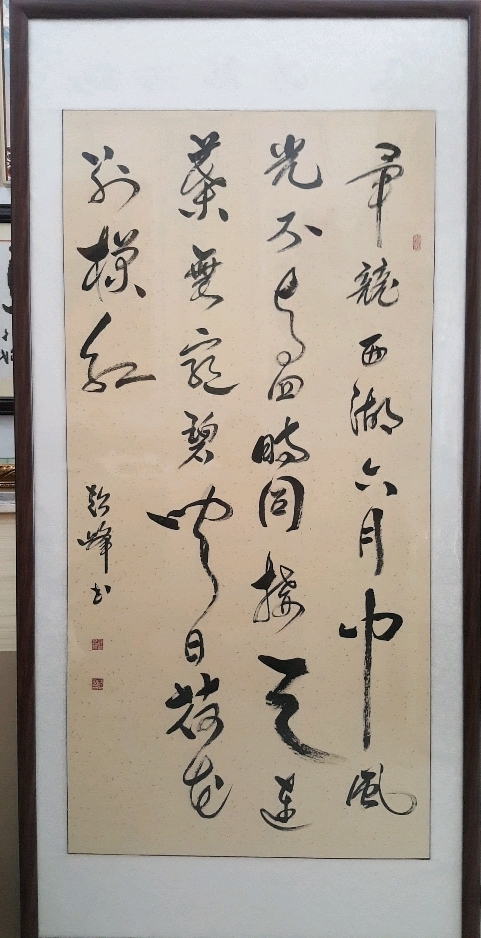 畢競西湖六月中風
光不與四時同接天蓮
葉無窮碧映日荷花
別樣紅
峰书